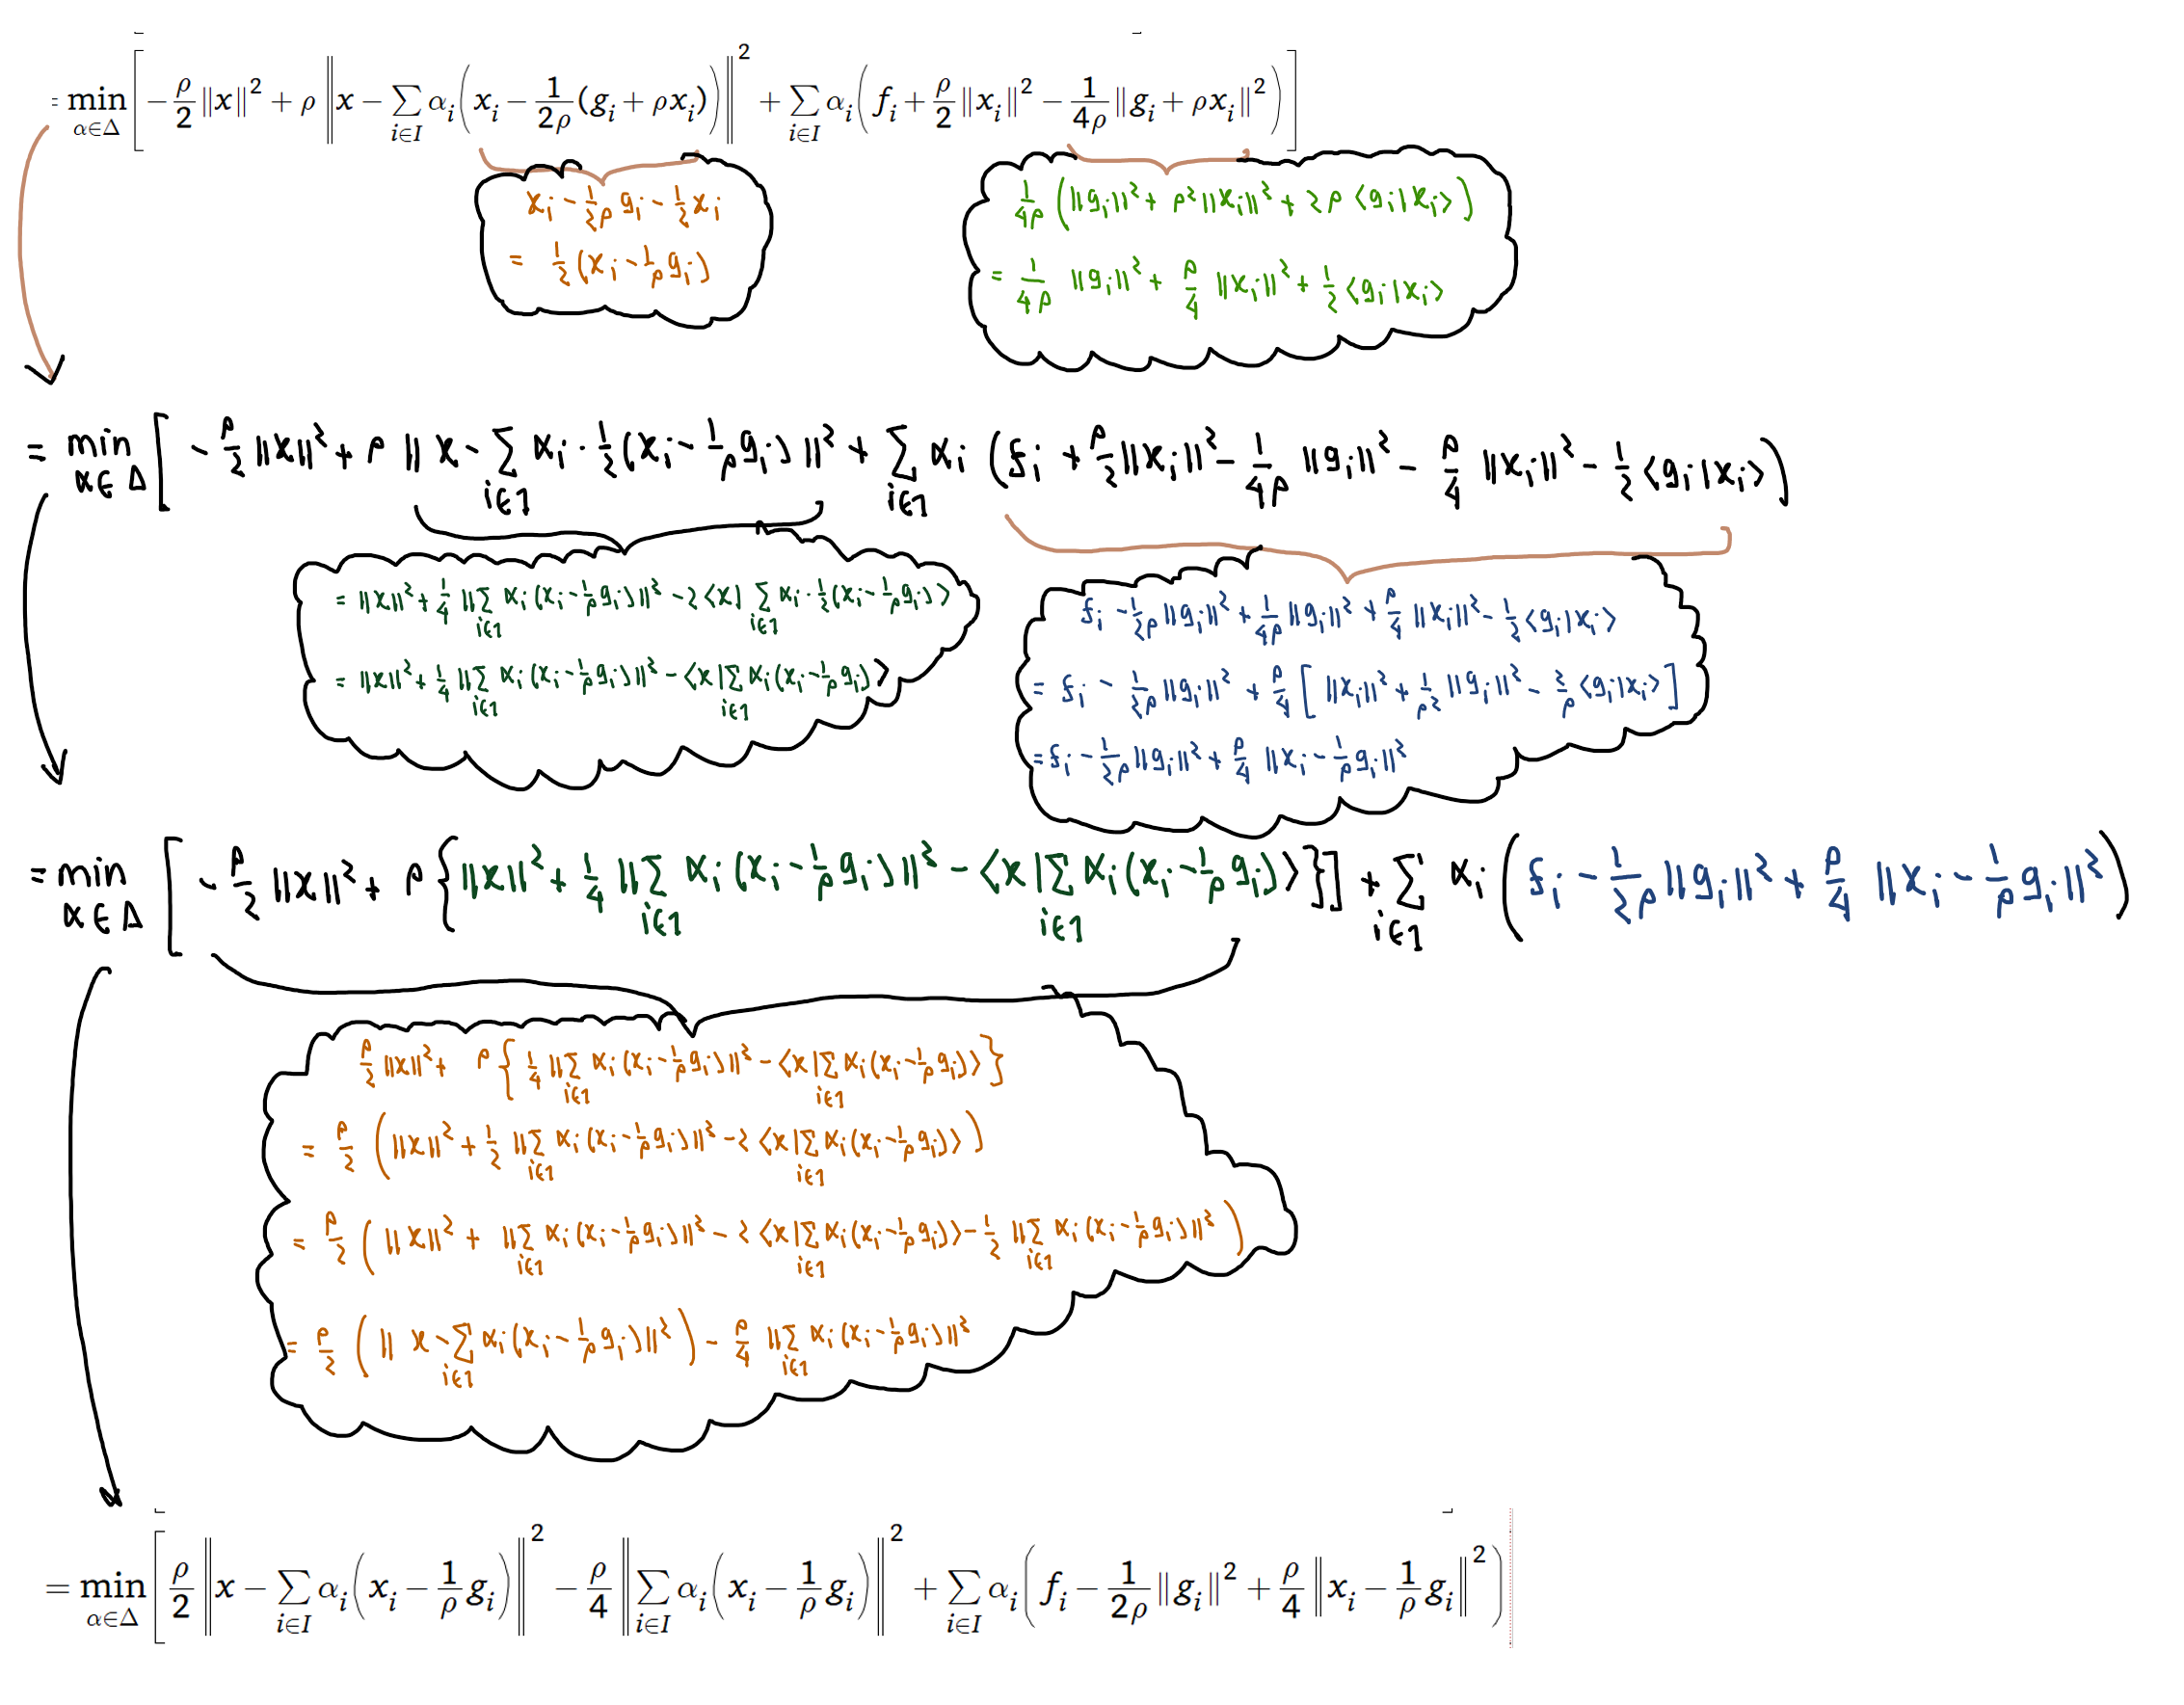 = min_{α∈Δ} [ −ρ/2 ‖x‖² + ρ ‖x − ∑_{i∈I} α_i (x_i − 1/(2ρ) (g_i + ρx_i))‖² + ∑_{i∈I} α_i (f_i + ρ/2 ‖x_i‖² − 1/(4ρ) ‖g_i + ρx_i‖²) ]
x_i − 1/(2ρ) g_i − 1/2 x_i
= 1/2 (x_i − 1/ρ g_i)
1/(4ρ) (‖g_i‖² + ρ²‖x_i‖² + 2ρ ⟨g_i | x_i⟩)
= 1/(4ρ) ‖g_i‖² + ρ/4 ‖x_i‖² + 1/2 ⟨g_i | x_i⟩
= min_{α∈Δ} [ −ρ/2 ‖x‖² + ρ ‖x − ∑_{i∈I} α_i · 1/2 (x_i − 1/ρ g_i)‖² + ∑_{i∈I} α_i (f_i + ρ/2 ‖x_i‖² − 1/(4ρ) ‖g_i‖² − ρ/4 ‖x_i‖² − 1/2 ⟨g_i | x_i⟩)
= ‖x‖² + 1/4 ‖∑_{i∈I} α_i (x_i − 1/ρ g_i)‖² − 2 ⟨x | ∑_{i∈I} α_i · 1/2 (x_i − 1/ρ g_i)⟩
= ‖x‖² + 1/4 ‖∑_{i∈I} α_i (x_i − 1/ρ g_i)‖² − ⟨x | ∑_{i∈I} α_i (x_i − 1/ρ g_i)⟩
f_i − 1/(2ρ) ‖g_i‖² + 1/(4ρ) ‖g_i‖² + ρ/4 ‖x_i‖² − 1/2 ⟨g_i | x_i⟩
= f_i − 1/(2ρ) ‖g_i‖² + ρ/4 [ ‖x_i‖² + 1/ρ² ‖g_i‖² − 2/ρ ⟨g_i | x_i⟩ ]
= f_i − 1/(2ρ) ‖g_i‖² + ρ/4 ‖x_i − 1/ρ g_i‖²
= min_{α∈Δ} [ −ρ/2 ‖x‖² + ρ {‖x‖² + 1/4 ‖∑_{i∈I} α_i (x_i − 1/ρ g_i)‖² − ⟨x | ∑_{i∈I} α_i (x_i − 1/ρ g_i)⟩}] + ∑_{i∈I} α_i (f_i − 1/(2ρ) ‖g_i‖² + ρ/4 ‖x_i − 1/ρ g_i‖²)
ρ/2 ‖x‖² + ρ { 1/4 ‖∑_{i∈I} α_i (x_i − 1/ρ g_i)‖² − ⟨x | ∑_{i∈I} α_i (x_i − 1/ρ g_i)⟩ }
= ρ/2 (‖x‖² + 1/2 ‖∑_{i∈I} α_i (x_i − 1/ρ g_i)‖² − 2 ⟨x | ∑_{i∈I} α_i (x_i − 1/ρ g_i)⟩)
= ρ/2 (‖x‖² + ‖∑_{i∈I} α_i (x_i − 1/ρ g_i)‖² − 2 ⟨x | ∑_{i∈I} α_i (x_i − 1/ρ g_i)⟩ − 1/2 ‖∑_{i∈I} α_i (x_i − 1/ρ g_i)‖²)
= ρ/2 (‖x − ∑_{i∈I} α_i (x_i − 1/ρ g_i)‖²) − ρ/4 ‖∑_{i∈I} α_i (x_i − 1/ρ g_i)‖²
= min_{α∈Δ} [ ρ/2 ‖x − ∑_{i∈I} α_i (x_i − 1/ρ g_i)‖² − ρ/4 ‖∑_{i∈I} α_i (x_i − 1/ρ g_i)‖² + ∑_{i∈I} α_i (f_i − 1/(2ρ) ‖g_i‖² + ρ/4 ‖x_i − 1/ρ g_i‖²)